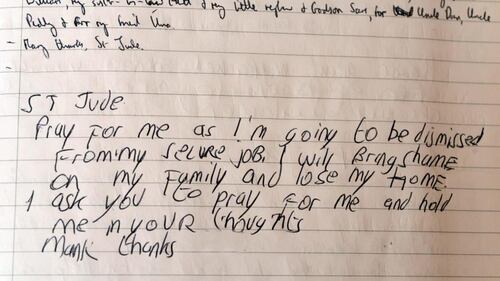 my little nephew & Godson Sam, for Uncle Dan, Uncle
Paddy & for my friend Una.
- Many thanks, St Jude.
-
ST Jude
Pray FOR me as I'm going to be dismissed
From my secure JOB. I will Bring shame
on my Family and lose my HOME.
I ask you to pray FOR me and hold
me in YOUR thoughts
Mank thanks